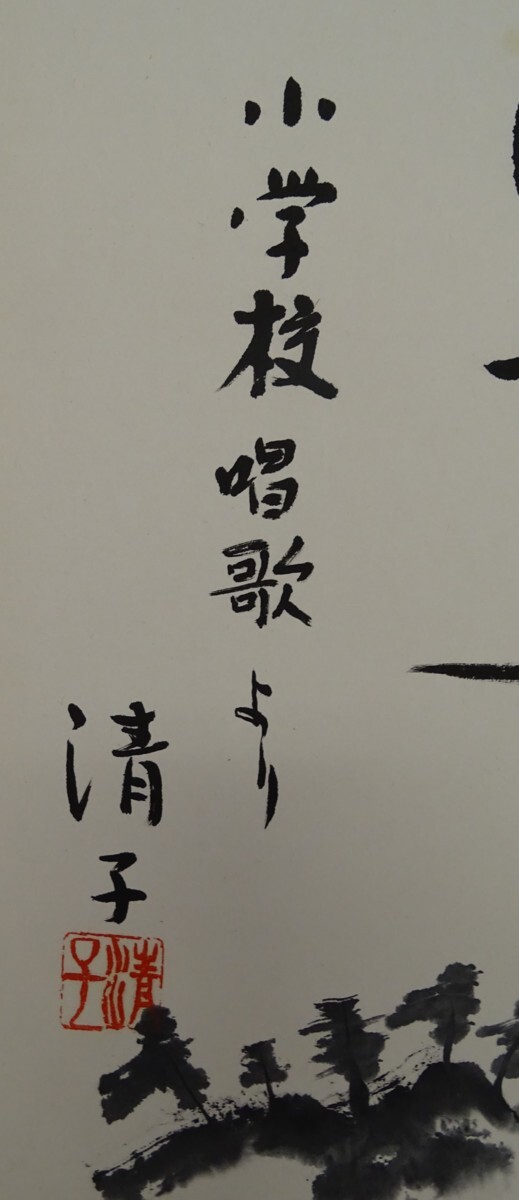 小学校唱歌より
清子
清子